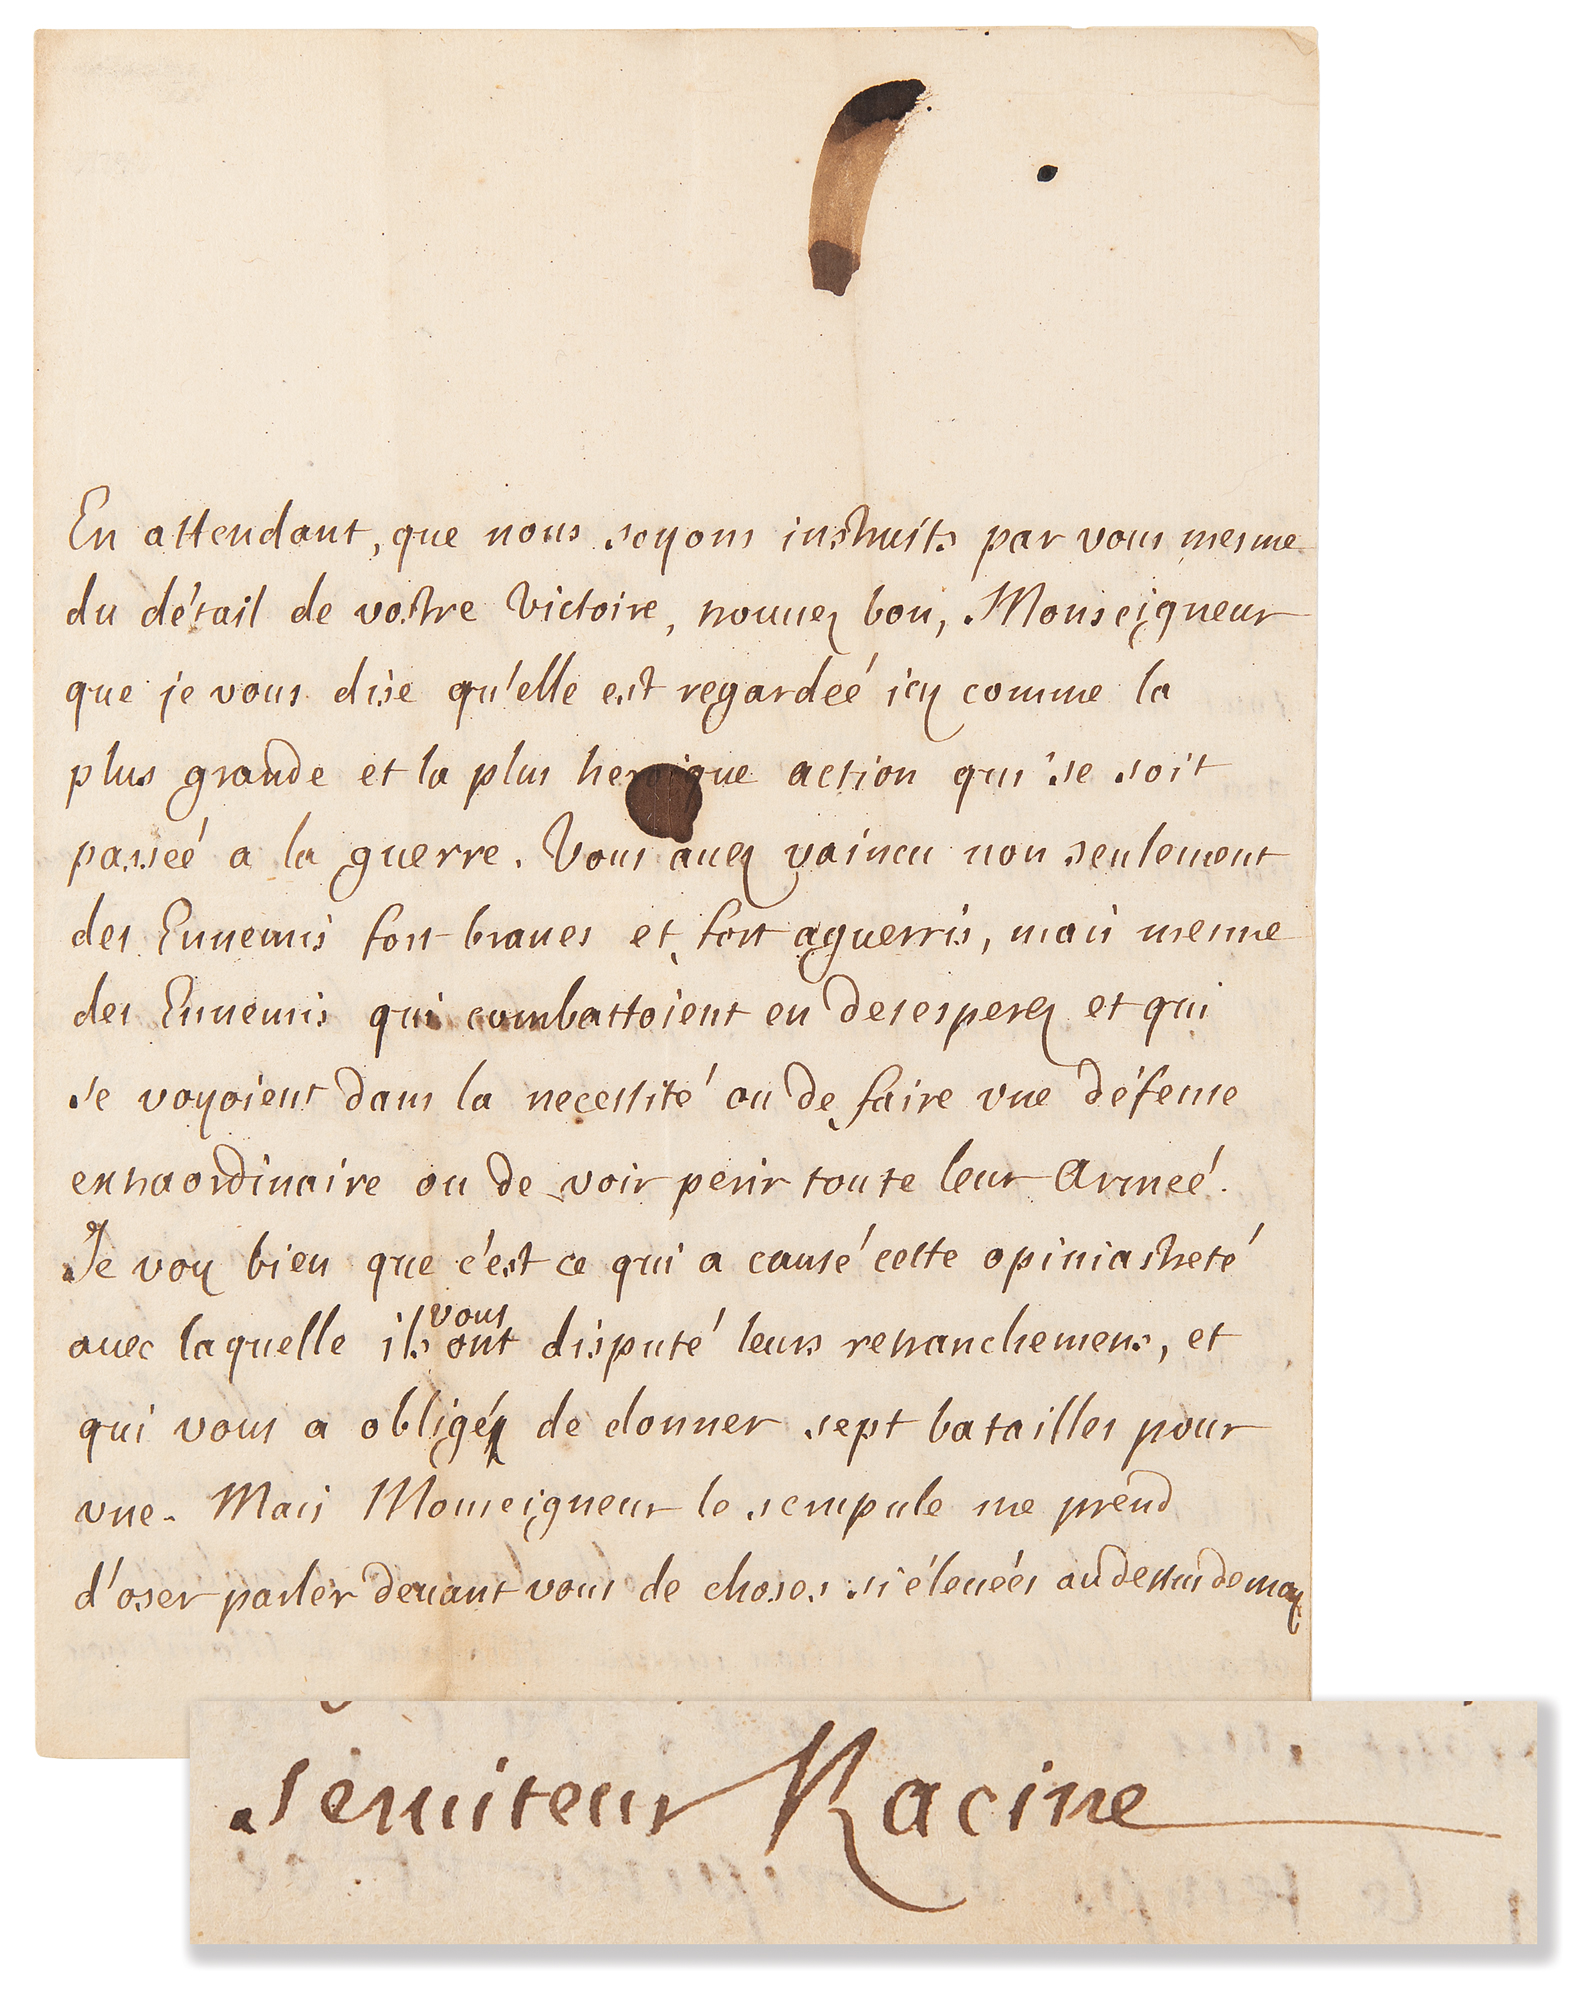 En attendant, que nous soyons instruits par vous mesme
du détail de vostre Victoire, trouuez bon, Monseigneur
que je vous dise qu'elle est regardeé icy comme la
plus grande et la plus heroique action qui se soit
passeé a la guerre. Vous auez vaincu non seulement
des Ennemis fort braues et fort aguerris, mais mesme
des Ennemis qui combattoient en desesperez et qui
se voyoient dans la necessité ou de faire vne défense
extraordinaire ou de voir perir toute leur Armeé.
Je voy bien que c'est ce qui a causé cette opiniastreté
auec laquelle ils vous ont disputé leurs retranchemens, et
qui vous a obligé de donner sept batailles pour
vne. Mais Monseigneur le scrupule me prend
d'oser parler deuant vous de choses si éleueés au dessus de moy
seruiteur Racine